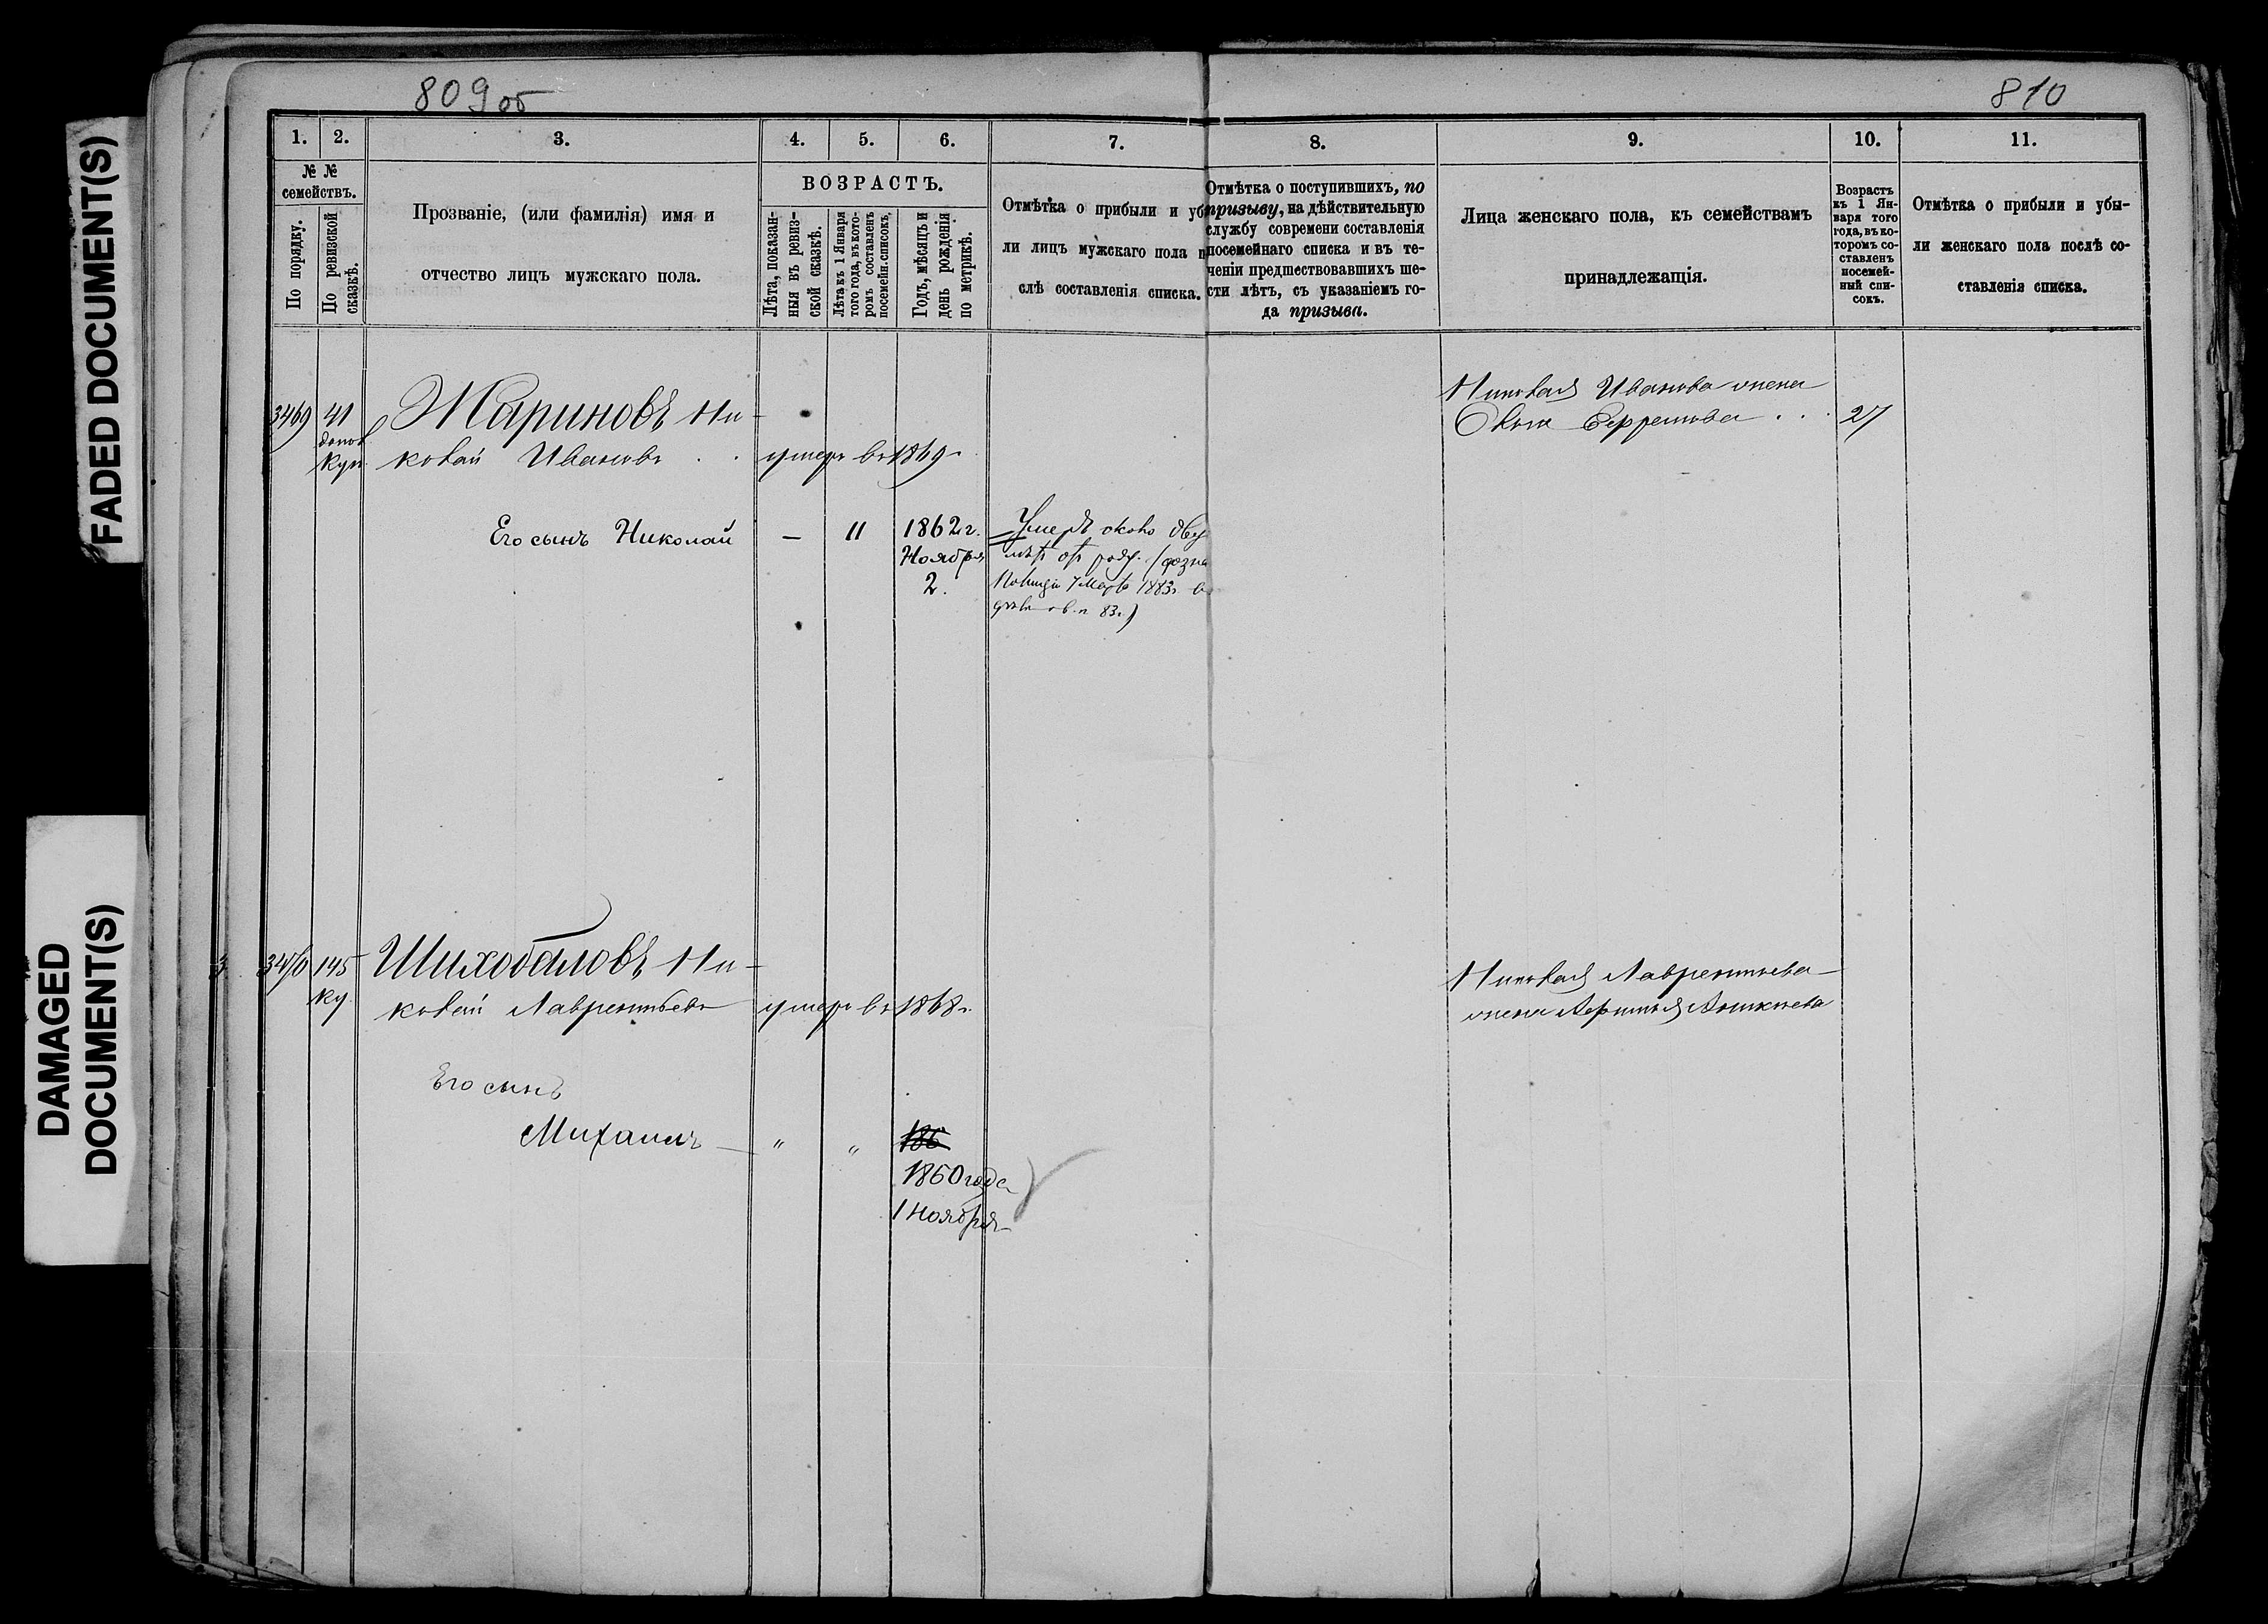 809об
810
1.
2.
3.
4.
5.
6.
7.
8.
9.
10.
11.
№ №
семействъ.
По порядку.
По ревизской
сказкѣ.
Прозваніе, (или фамилія) имя и
отчество лицъ мужскаго пола.
ВОЗРАСТЪ.
Лѣта, показан-
ныя въ ревиз-
ской сказкѣ.
Лѣта къ 1 Января
того года, въ кото-
ромъ составленъ
посемейн. списокъ.
Годъ, мѣсяцъ и
день рожденія
по метрикѣ.
Отмѣтка о прибыли и уб
ли лицъ мужскаго пола п
слѣ составленія списка.
Отмѣтка о поступившихъ, по
призыву, на дѣйствительную
службу современи составленія
посемейнаго списка и въ те-
ченіи предшествовавшихъ ше-
сти лѣтъ, съ указаніемъ го-
да призыва.
Лица женскаго пола, къ семействамъ
принадлежащія.
Возрастъ
къ 1 Ян-
варя того
года, въ ко-
торомъ со-
ставленъ
посемей-
ный спи-
сокъ.
Отмѣтка о прибыли и убы-
ли женскаго пола послѣ со-
ставленія списка.
3469 41 Жариновъ Ни-
колай Ивановъ . . умеръ въ 1869г
куп.
Николая Иванова жена
Ефремова . . . 27
Его сынъ Николай — 11 1862г.
Ноября
2.
Умеръ около двух
лѣтъ отъ рожд.
7 Марта 1883г.
83г.)
3470 145 Шихобаловъ Ни-
ку. колай Лаврентьевъ умеръ въ 1868г.
Николая Лаврентьева
жена
Его сынъ
Михаилъ — " " 186
1860 года
1 Ноября
FADED DOCUMENT(S)
DAMAGED
DOCUMENT(S)